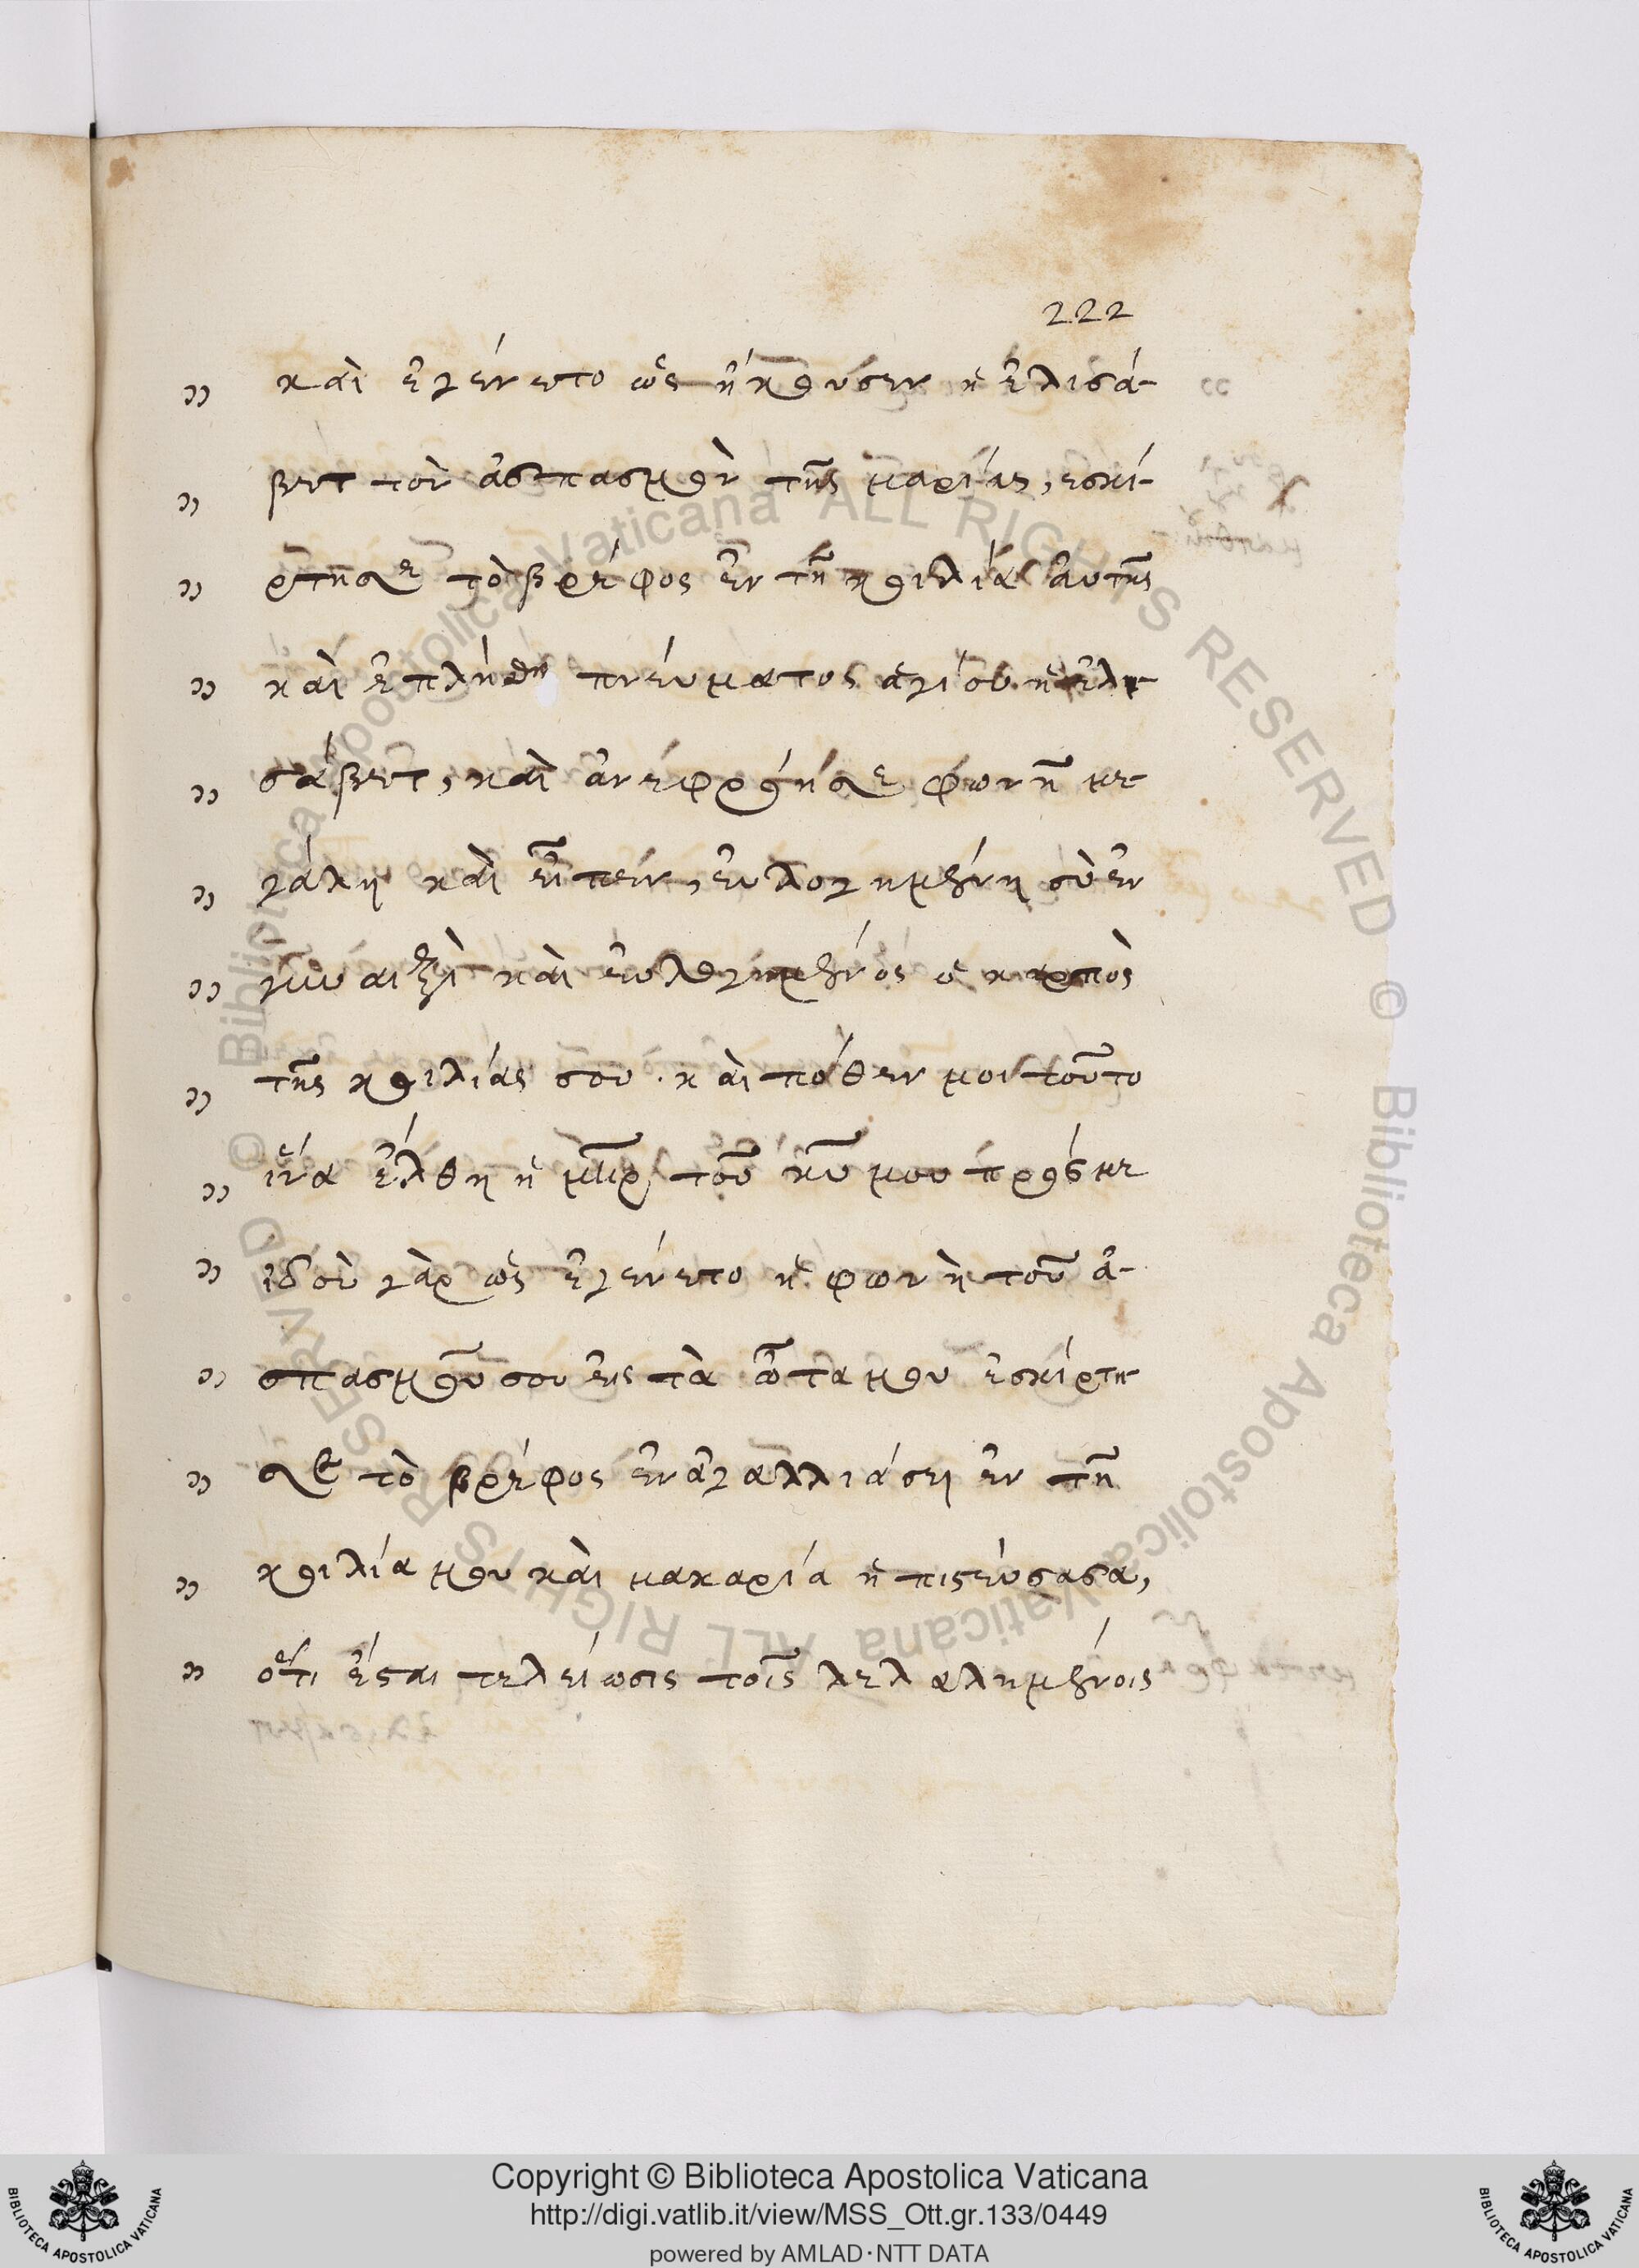 222
καὶ ἐγένετο ὡς ἤκουσεν ἡ ἐλισά-
βετ τὸν ἀσπασμὸν τῆς μαρίας, ἐσκί-
ρτησε τὸ βρέφος ἐν τῆ κοιλία αὐτῆς
καὶ ἐπλήσθη πνεύματος ἁγίου ἡ ἐλι-
σάβετ, καὶ ἀνεφώνησε φωνῆ με-
γάλη καὶ εἶπεν, εὐλογημένη σὺ ἐν
γυναιξὶ καὶ εὐλογημένος ὁ καρπὸς
τῆς κοιλίας σου. καὶ πόθεν μοι τοῦτο
ἵνα ἔλθη ἡ μηρ τοῦ κυ μου πρός με
ἰδοὺ γὰρ ὡς ἐγένετο ἡ φωνὴ τοῦ ἀ-
σπασμοῦ σου εἰς τὰ ὦτα μου ἐσκίρτη-
σε τὸ βρέφος ἐν ἀγαλλιάσει ἐν τῆ
κοιλία μου καὶ μακαρία ἡ πιστεύσασα,
ὅτι ἔσται τελείωσις τοῖς λελαλημένοις
Copyright © Biblioteca Apostolica Vaticana
http://digi.vatlib.it/view/MSS_Ott.gr.133/0449
powered by AMLAD·NTT DATA
BIBLIOTECA APOSTOLICA VATICANA
BIBLIOTECA APOSTOLICA VATICANA
© Biblioteca Apostolica Vaticana ALL RIGHTS RESERVED
© Biblioteca Apostolica Vaticana ALL RIGHTS RESERVED